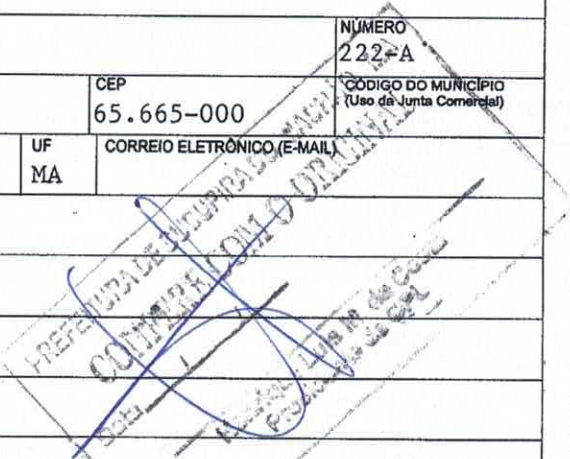 NÚMERO
222-A
CEP
65.665-000
CÓDIGO DO MUNICÍPIO
(Uso da Junta Comercial)
UF
MA
CORREIO ELETRÔNICO (E-MAIL)
PREFEITURA DE SUCUPIRA DO
CONFERE COM O ORIGINAL
Data
Luis
Presidente da CPL